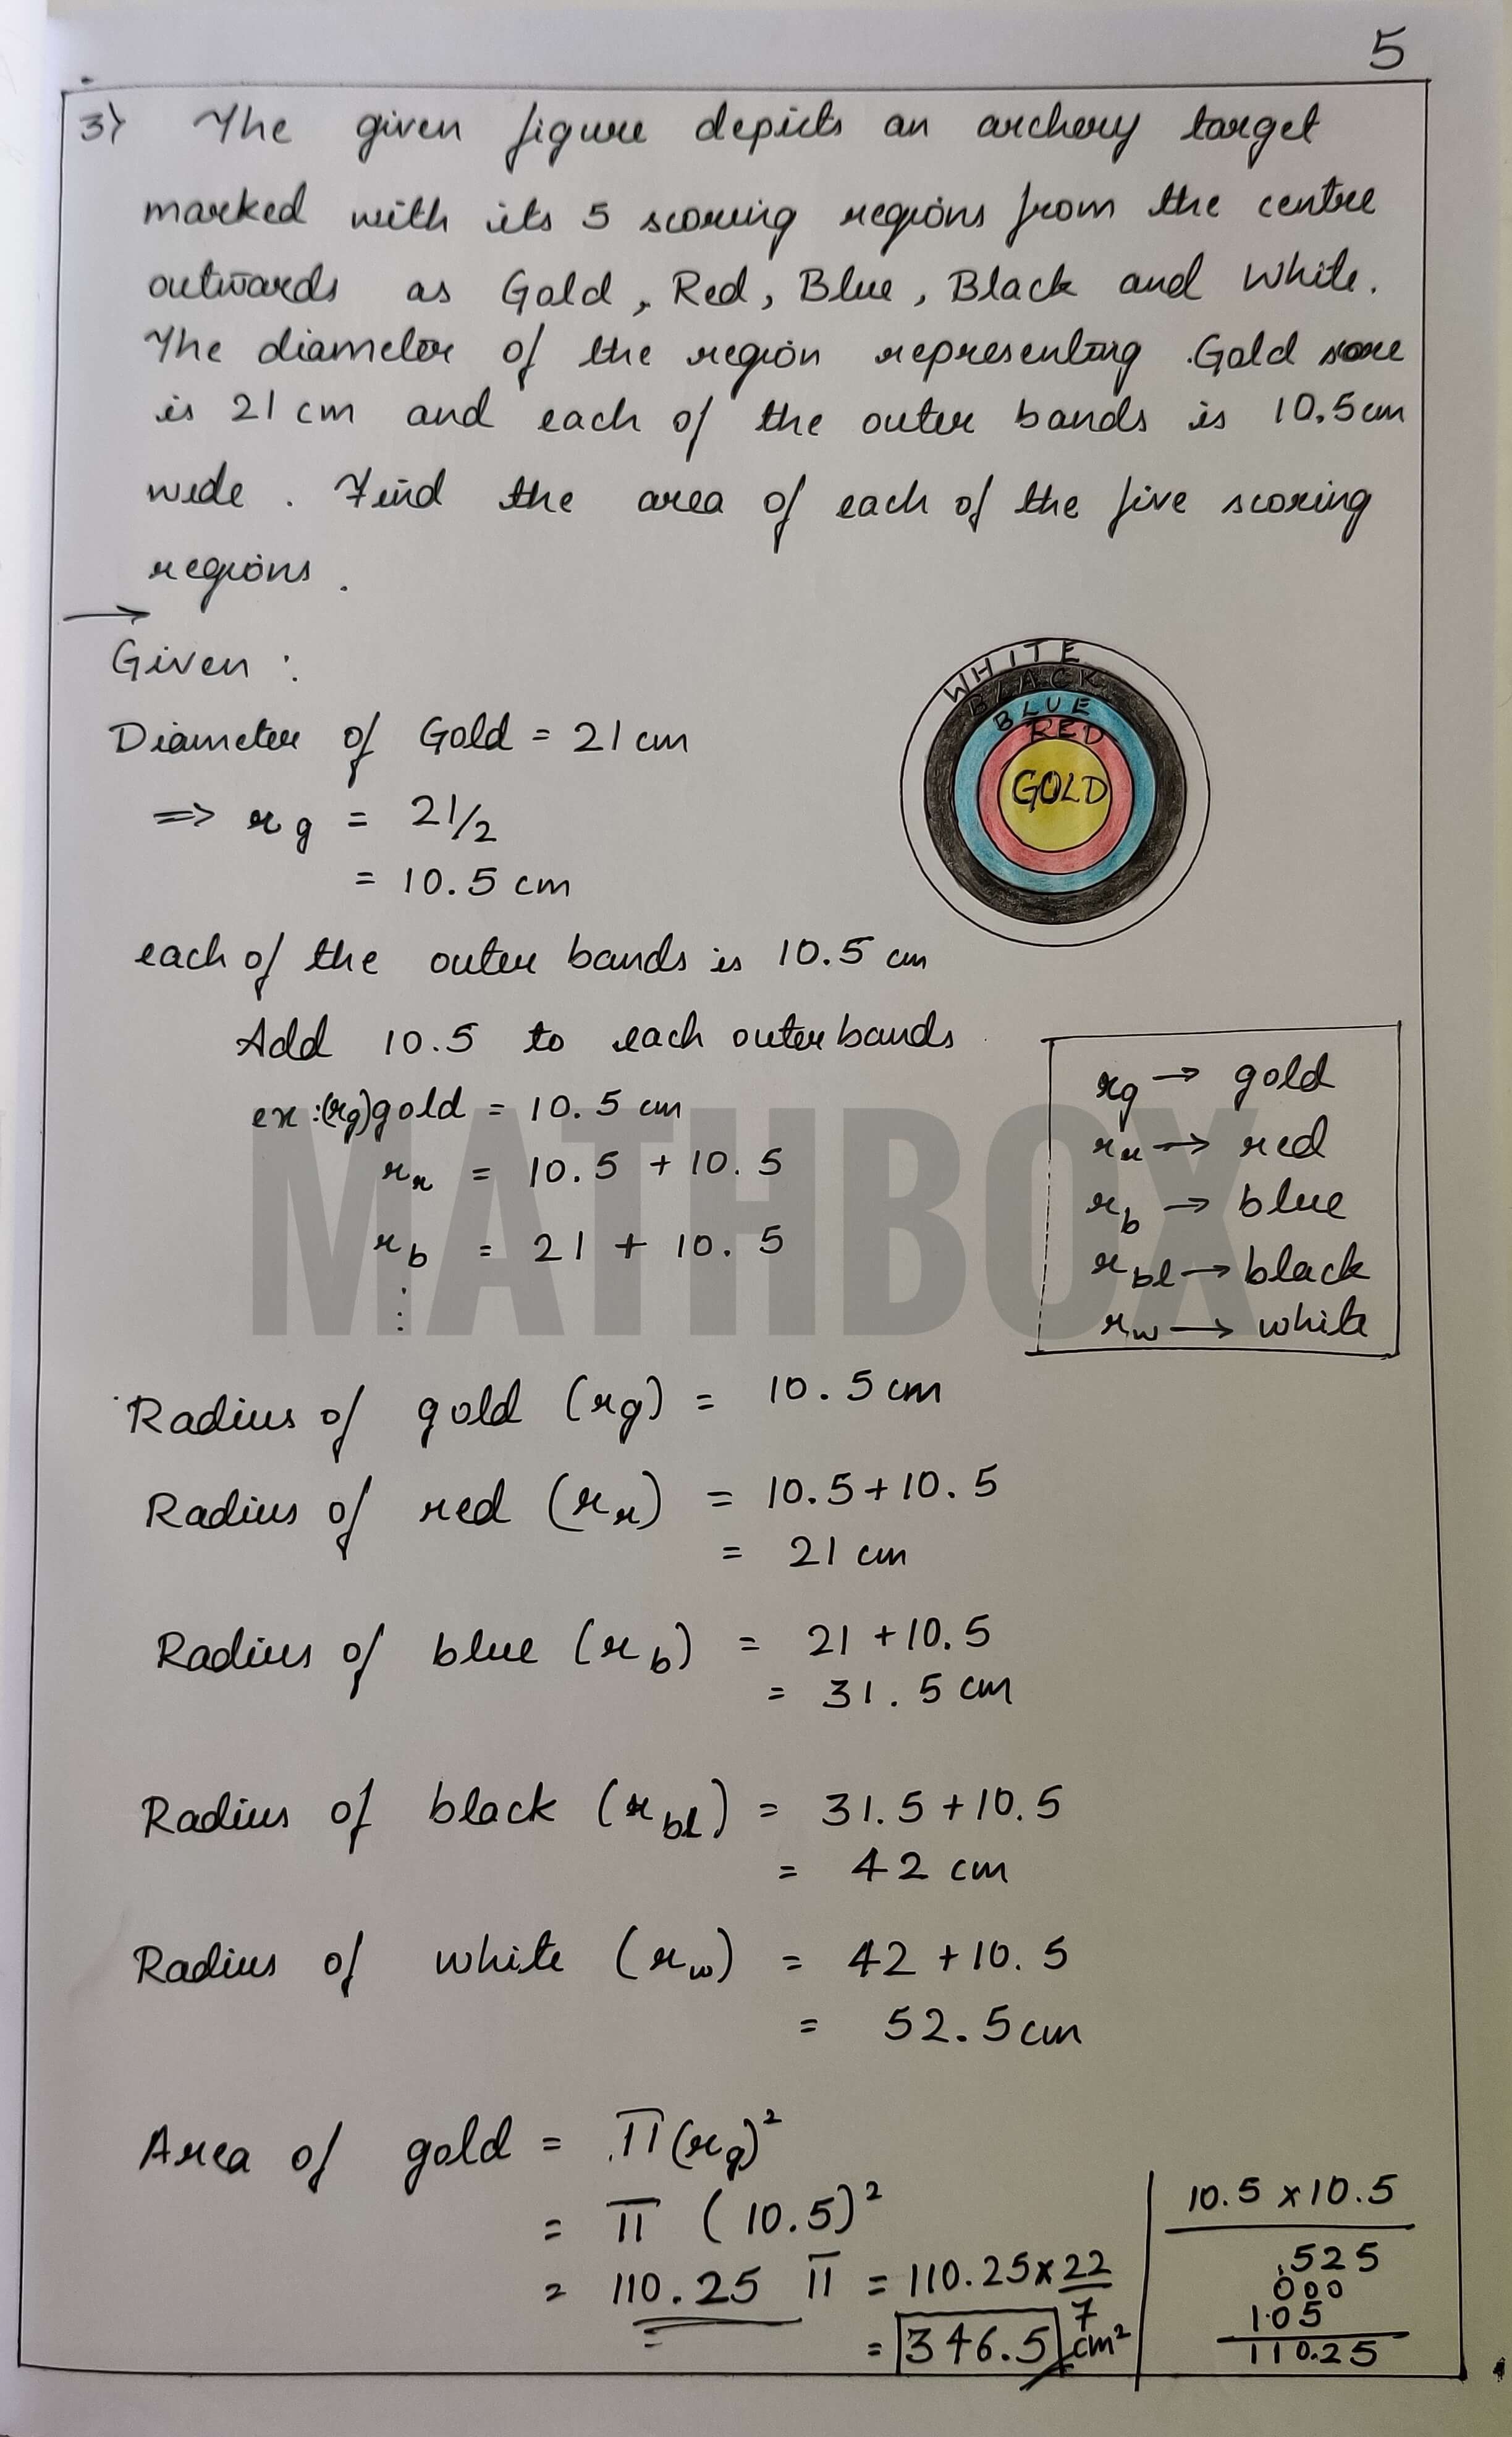 5
3) The given figure depicts an archery target
marked with its 5 scoring regions from the centre
outwards as Gold, Red, Blue, Black and White.
The diameter of the region representing Gold score
is 21 cm and each of the outer bands is 10.5cm
wide. Find the area of each of the five scoring
regions.
→
Given :
WHITE
BLACK
BLUE
RED
GOLD
Diameter of Gold = 21 cm
=> rg = 21/2
= 10.5 cm
each of the outer bands is 10.5 cm
Add 10.5 to each outer bands
ex :(rg)gold = 10.5 cm
r_r = 10.5 + 10.5
r_b = 21 + 10.5
⋮
rg → gold
r_r → red
r_b → blue
r_bl → black
r_w → white
MATHBOX
Radius of gold (rg) = 10.5cm
Radius of red (r_r) = 10.5+10.5
= 21 cm
Radius of blue (r_b) = 21 +10.5
= 31.5 cm
Radius of black (r_bl) = 31.5+10.5
= 42 cm
Radius of white (r_w) = 42 +10.5
= 52.5cm
Area of gold = π(rg)²
= π (10.5)²
= 110.25 π = 110.25×22/7
= 346.5 cm²
10.5 ×10.5
525
000
105
110.25